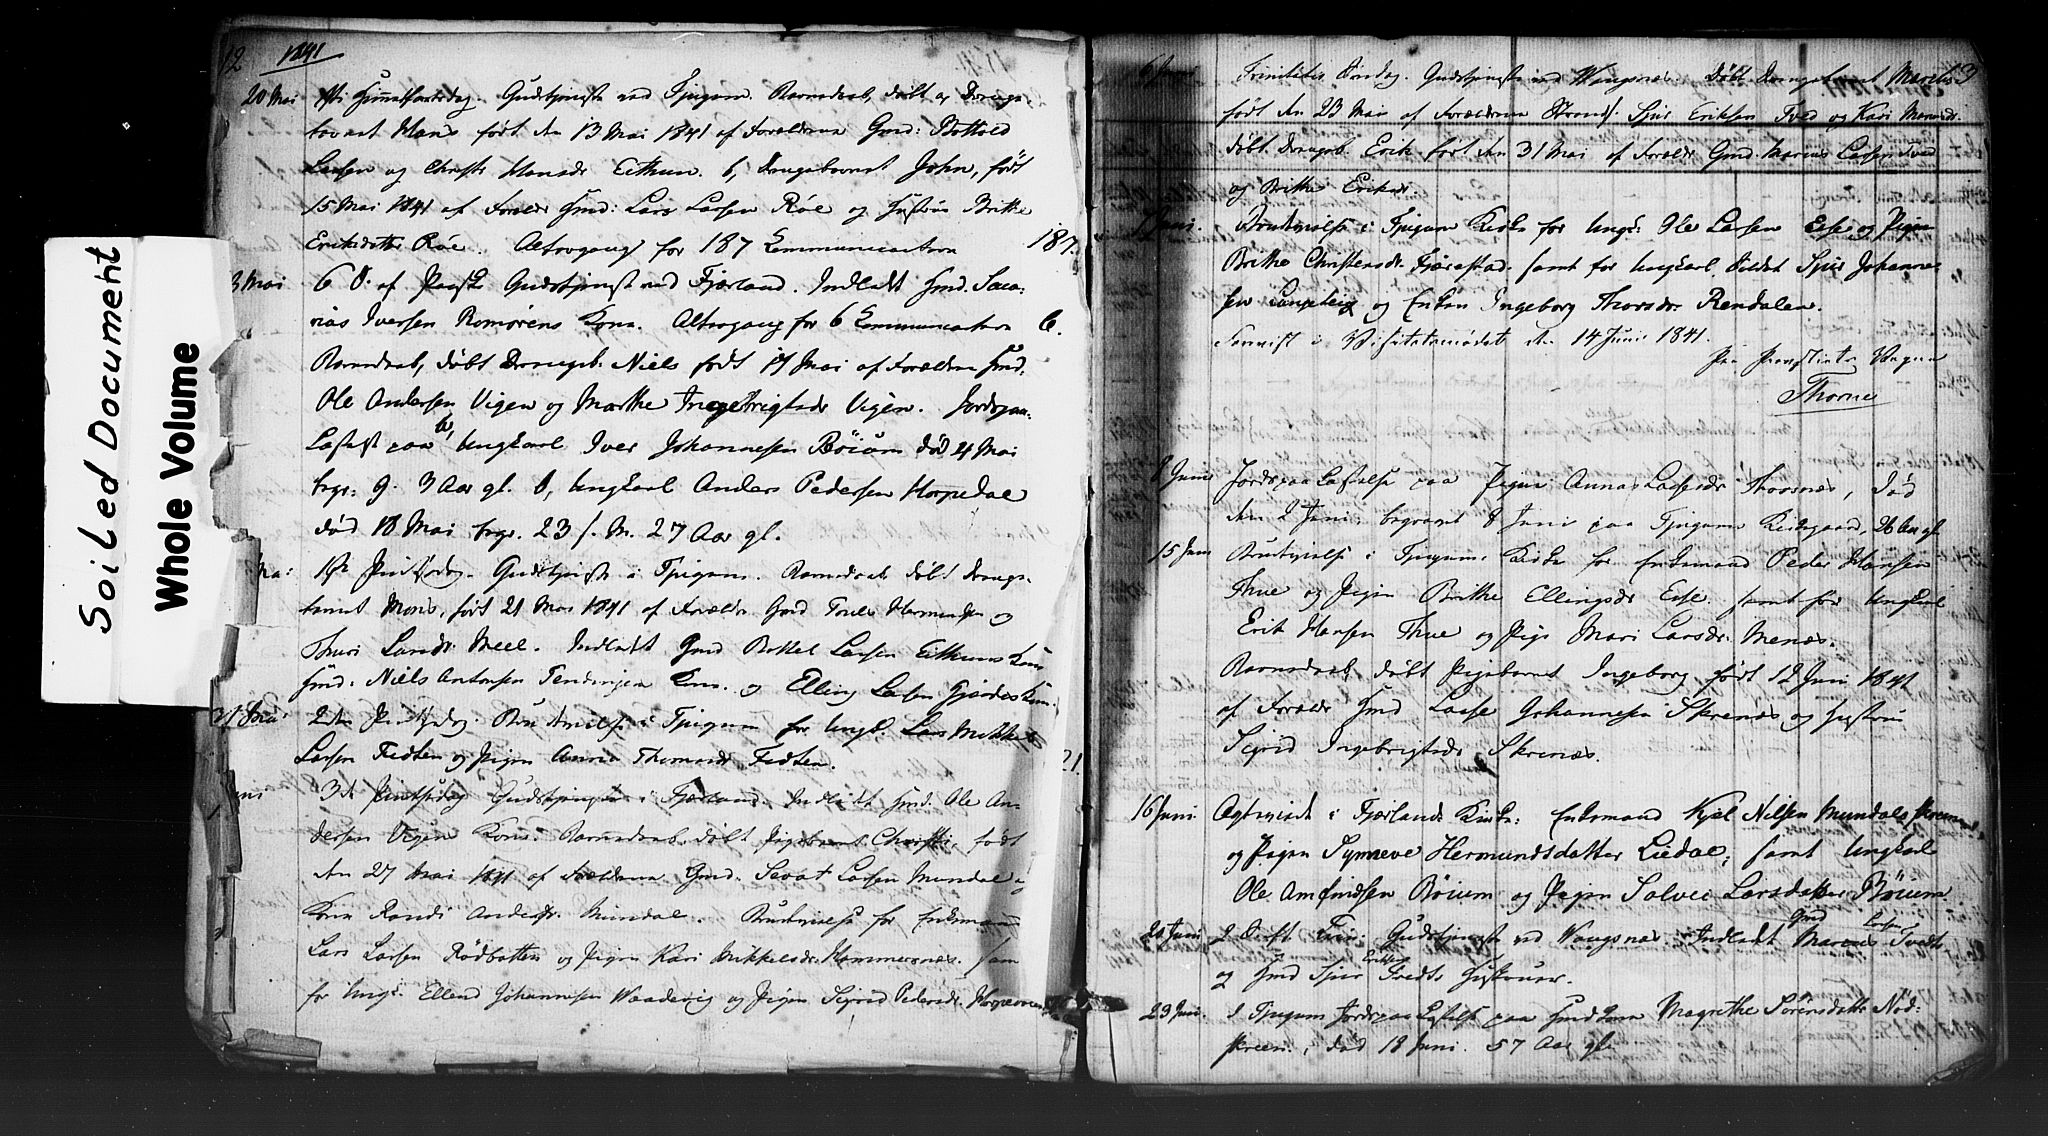 12 1841
20 Mai Chr: Himmelfartsdag. Gudstjeneste ved Tjugum. Barnedaab, døbt a, Drenge-
barnet Hans født den 13 Mai 1841 af Forældrene Gmd: Bothold
Larsen og Christi Hansdr Eithun. b, Drengebarnet John, født
15 Mai 1841 af Forældr Hmd: Lars Larsen Røe og Hustrue Brithe
Eriksdatter Røe. Altergang for 187 Communicantere 187.
3 Mai 6 S. af Paaske Gudstjeneste ved Fjærland. Indledt Hmd. Saca-
rias Iversen Romørens Kone. Altergang for 6 Communicantere 6.
Barnedaab, døbt Drengeb. Niels født 17 Mai af Forældrene Hmd.
Ole Andersen Vigen og Marthe Ingebrigtsdr Vigen. Jordspaa-
kastelse paa a, Ungkarl Iver Johannesen Bøium død 4 Mai
begr: 9. 3 Aar gl. b, Ungkarl Anders Pedersen Horpedal
død 18 Mai begr. 23 s. M. 27 Aar gl.
Mai 1ste Pintsedag. Gudstjeneste i Tjugum. Barnedaab døbt Drenge-
barnet Mons, født 21 Mai 1841 af Forældr Gmd Truls Hermundsen og
Thuri Larsdr Meel. Indledt Gmd Bottel Larsen Eithuns Kone
Hmd: Niels Antonsen Tendingen Kone. og Elling Larsen Gjerdes Kone.
31 Mai 2den Pintsedag. Brudevielse i Tjugum for Ungk. Lars Mikkel
Larsen Fedten og Pigen Anna Thomasdr Fedten. 21.
Juni 3de Pintsedag Gudstjeneste i Fjærland. Indledt Hmd. Ole An-
dersen Vigen Kone. Barnedaab døbt Pigebarnet Christi, født
den 27 Mai 1841 af Forældrene Gmd. Sevat Larsen Mundal og
Kone Randi Andersdr. Mundal. Brudevielse for Enkemand
Lars Larsen Rødbotten og Pigen Kari Mikkelsdr. Hammersnes. Samt
for Ungk. Ellend Johannesen Waadevig og Pigen Sigrid Pedersdr.
6 Juni Trinitatis Søndag. Gudstjeneste ved Wangsnes. Døbt Drengebarnet
født den 23 Mai af Forældrene Strands. Sjur Eriksen Tved og Kari Monsdr.
døbt Drengeb. Erik født den 31 Mai af Forældr Gmd. Marcus Larsen Tved
og Brithe Eriksdr.
7 Juni. Brudevielse i Tjugum Kirke for Ungk: Ole Larsen Esse og Pigen
Brithe Christensdr. Fjærestad. samt for Ungkarl Soldat Sjur Johanne-
sen og Enken Ingeborg Thorsdr Rendalen.
Foreviist i Visitatsmødet den 14 Juni 1841.
Paa Provstiets Vegne
Thorne
8 Juni Jordspaakastelse paa Pigen Anna Lassesdr Thorsnes, død
den 2 Juni, begravet 8 Juni paa Tjugum Kirkegaard, 26 Aar gl
15 Juni Brudevielse i Tjugums Kirke for Enkemand Peder Hansen
Thue og Pigen Brithe Ellingsdr Esse. samt for Ungkarl
Erik Hansen Thue og Pige Mari Larsdr. Menes.
Barnedaab, døbt Pigebarnet Ingeborg født 12 Juni 1841
af Forældr Hmd Lasse Johannesen Skrenes og Hustrue
Sigrid Ingebrigtsdr Skrenes.
16 Juni Ægteviede i Fjærlands Kirke: Enkemand Kjel Nilsen Mundals
og Pigen Synneve Hermundsdatter Liedal; samt Ungkarl
Ole Amfindsen Bøium og Pigen Solvei Larsdatter Bøium.
20 Juni 2 S. eft. Trin: Gudstjeneste ved Vangsnes. Indledt Gmd Marcus Larsen Tvedts
og Hmd Sjur Eriksen Tvedts Hustruer.
23 Juni. I Tjugum Jordspaakastelse paa Hmd Kone Magrethe Sørensdatter Nød-
skreen, død 18 Juni. 57 Aar gl.
Soiled Document
Whole Volume